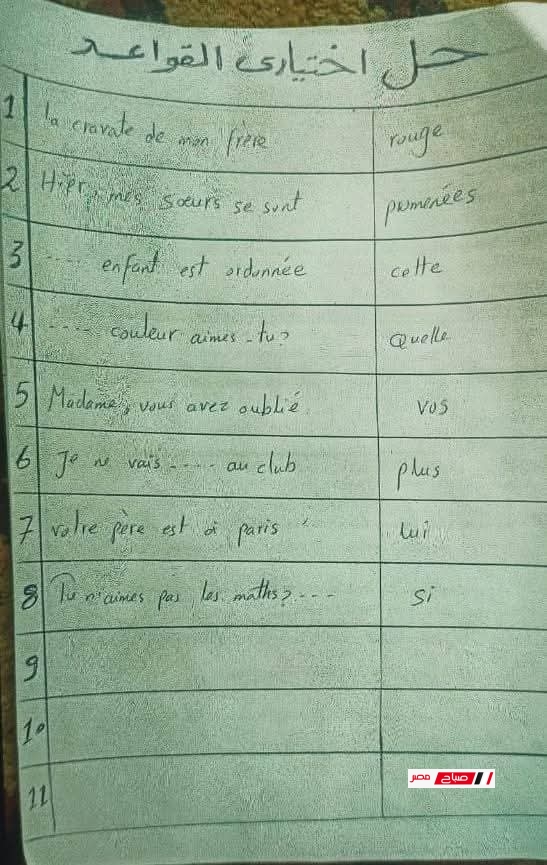 حل اختيارى القواعد
1 la cravate de mon frère rouge
2 Hier, mes sœurs se sunt promenées
3 .... enfant est ordonnée cette
4 .... couleur aimes-tu? Quelle
5 Madame, vous avez oublié vos
6 Je ne vais .... au club plus
7 votre père est à paris lui
8 Tu n'aimes pas les maths? ... si
9
10
11
صباح مصر